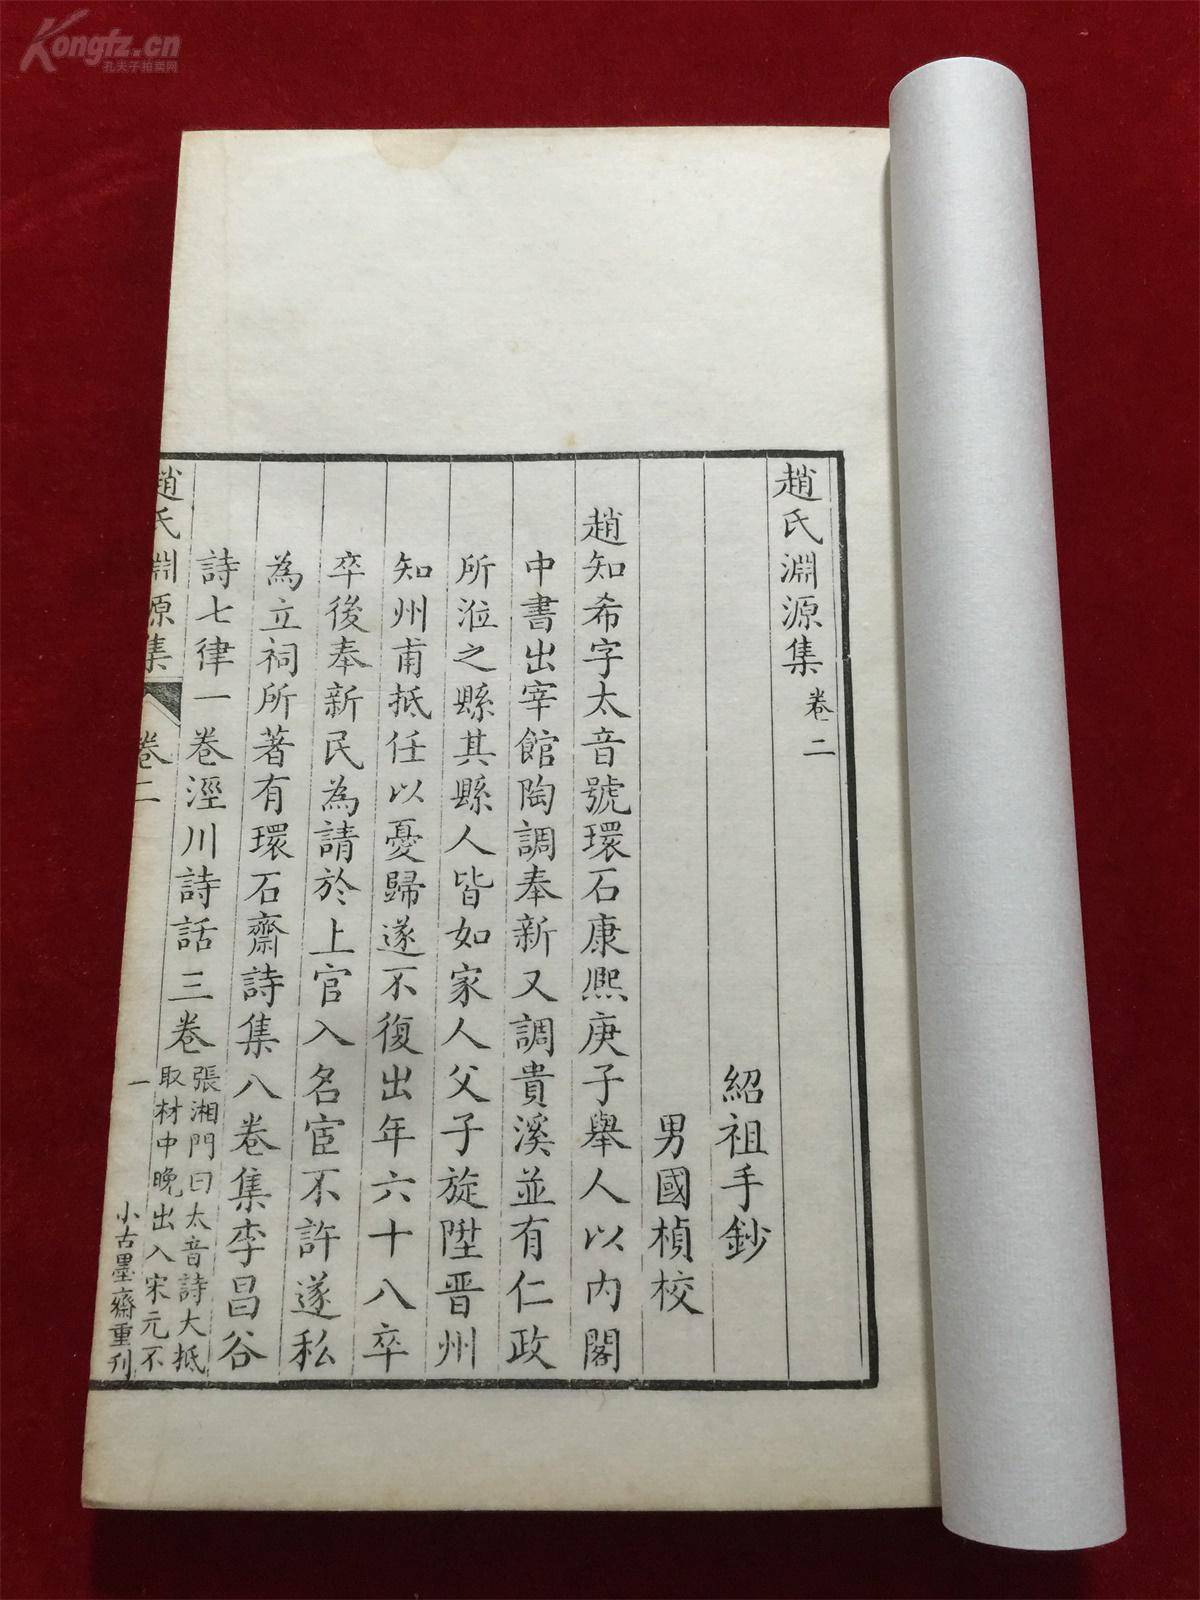 Kongfz.cn
孔夫子拍卖网
趙氏淵源集卷二
紹祖手鈔
男國楨校
趙知希字太音號環石康熙庚子舉人以内閣
中書出宰館陶調奉新又調貴溪並有仁政
所涖之縣其縣人皆如家人父子旋陞晋州
知州甫抵任以憂歸遂不復出年六十八卒
卒後奉新民為請於上官入名宦不許遂私
為立祠所著有環石齋詩集八卷集李昌谷
詩七律一卷涇川詩話三卷
張湘門曰太音詩大抵
取材中晚出入宋元不
趙氏淵源集
卷二
一
小古墨齋重刊